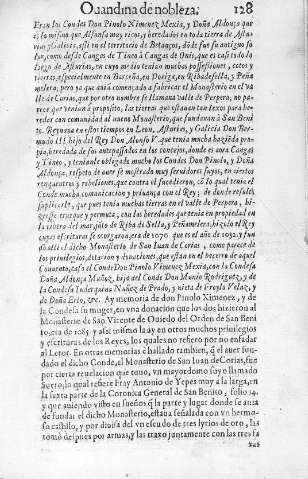 Ouandina de nobleza. 128
Eran los Condes Don Pinolo Ximenez Mexia, y Doña Aldonça que
es lo mismo que Alfonsa muy ricos, y heredados en toda tierra de Astu
rias y Galicia, assi en el territorio de Betanços, dōde fue su antiguo so
lar, como desde Cangas de Tineo à Cangas de Onis, que es casi todo lo
largo de Asturias, en cuyo medio tenian muchas possessiones, cotos y
tierras, especialmente en en Doriga, en Ribadesella, y Peña
melera, pero ya que avia començado a fabricar el Monasterio en el va
lle de Corias, que por otro nombre se llamava valle de Perpera, no pa
rece que venian à proposito, las tierras que estavan tan lexos para ha
zerles con comunidad al nuevo Monasterio, que fundavan à San Beni
to. Reynava en estos tiempos en Leon, Asturias, y Galicia Don Ber
mudo III. hijo del Rey Don Alonso V. que tenia mucha hazienda pro
pia, heredada de sus antepassados en los concejos, donde es aora Cangas
y Tineo, y teniale obligado mucho los Condes Don Pinolo, y Doña
Aldonça, respeto de aver se mostrado muy servidores suyos, en ciertos
rençuentros y rebeliones, que contra el sucedieron, cō lo qual tenia el
Conde mucha comunicacion y privança con el Rey; de donde resultò,
suplicarle, que pues tenia muchas tierras en el valle de Perpera, hi-
ziesse trueque y permuta, con las heredades que tenia en propiedad en
la ribera del mar, junto de Riba de Sella, y Peñamelera, hizolo el Rey
cuyas escrituras se otorgaron, era de 1070 que es el año de 1032. y fun
dò alli el dicho Monasterio de San Iuan de Corias, como parece de
los privilegios, dotacion y donaciones, que estàn en el becerro de aquel
Convento, casò el Conde Don Pinolo Ximenez Mexia, con la Condesa
Doña Aldonça Muñoz, hija del Conde Don Munio Rodriguez, y de
la Condesa Enderquina Nuñez de Prado, y nieta de Froyla Velaz, y
de Doña &c. Ay memoria de don Pinolo Ximenez, y de
la Condesa su muger, en vna donacion que los dos hizieron al
Monasterio de San Vicente de Ouiedo del Orden de San Beni
to, era de 1083. y assi mismo la ay en otros muchos priuilegios
y escrituras de los Reyes, los quales no refiero por no enfadar
al Letor. En otras memorias è hallado tambien, q̄ el auer fun-
dado el dicho Conde, el Monasterio de San Iuan de Corias, fue
por cierta reuelacion que tuuo, vn mayordomo suyo llamado
Suero, lo qual refiere Fray Antonio de Yepes muy a la larga, en
la sexta parte de la Coronica General de San Benito, folio 14.
y que auiendo visto en sueños q̄ la parte y lugar donde se auia
de fundar el dicho Monasterio, estaua señalada con vn hermo-
so castillo, y por diuisa del vn escudo de tres lyrios de oro, las
tomò del pues por armas, y las traxo juntamente con las tres fa
xas